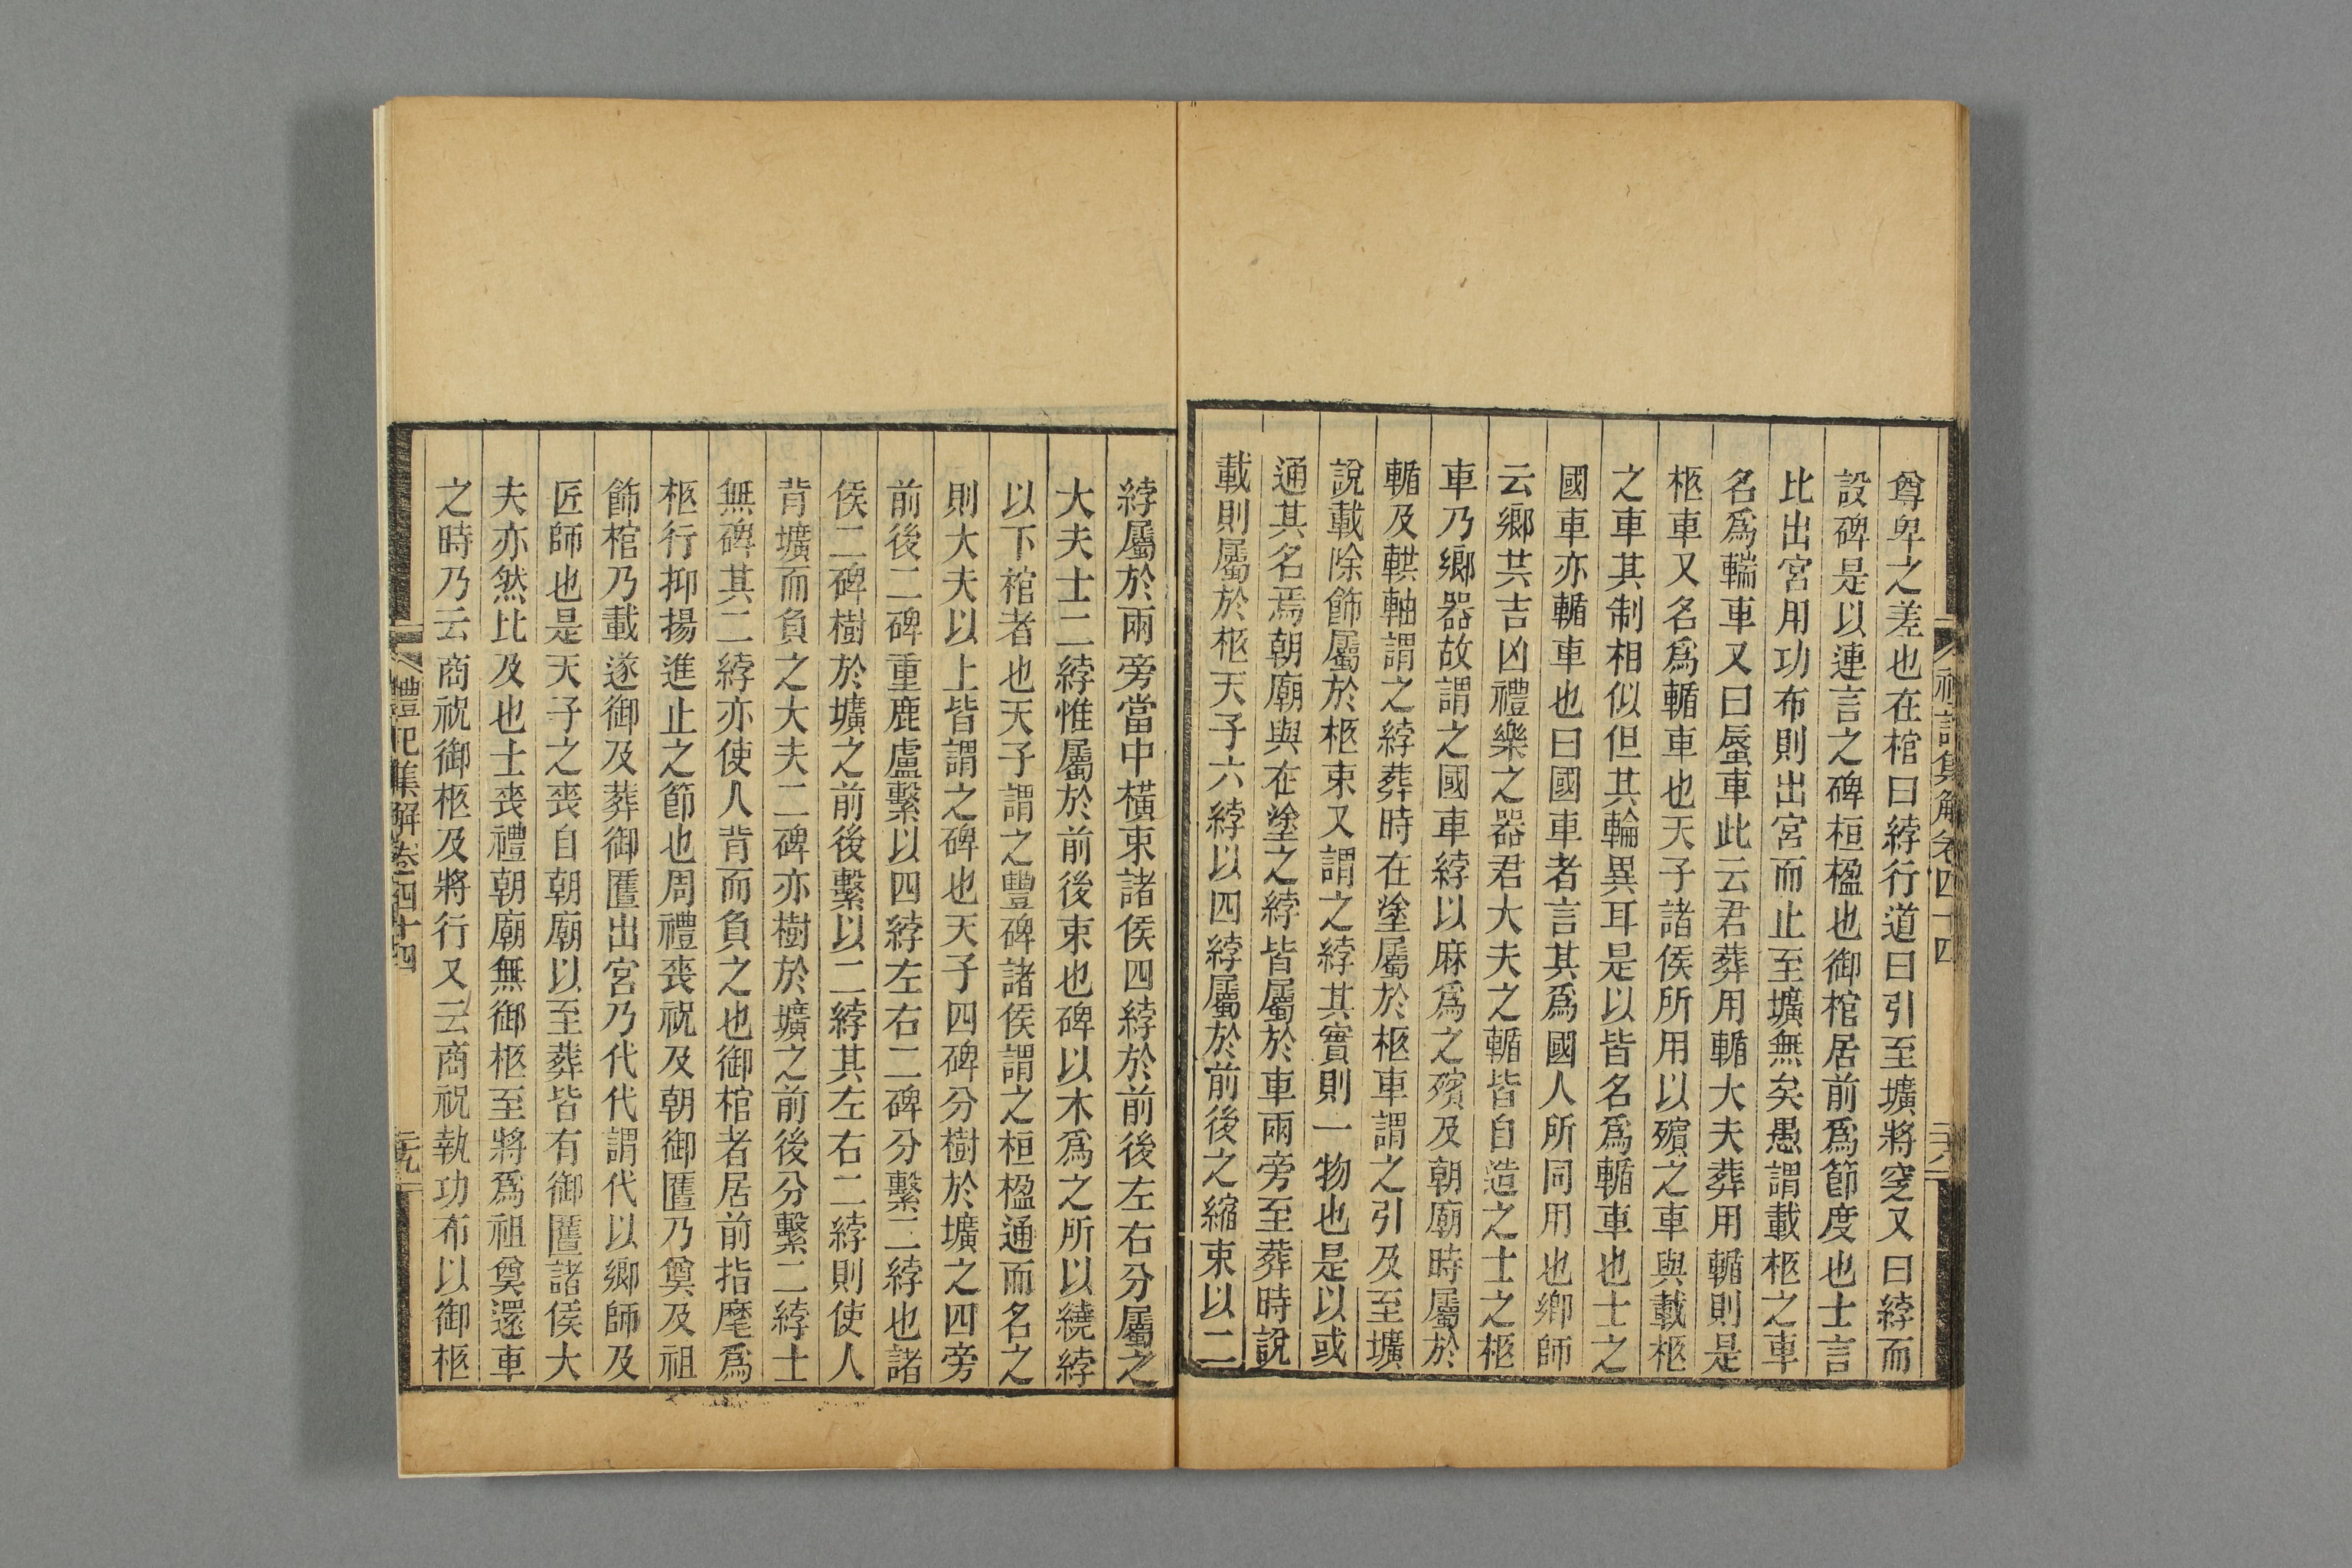 禮記集解卷四十四
二十八
尊卑之差也在棺曰綍行道曰引至壙將窆又曰綍而
設碑是以連言之碑桓楹也御棺居前爲節度也士言
比出宮用功布則出宮而止至壙無矣愚謂載柩之車
名爲輲車又曰蜃車此云君葬用輴大夫葬用輴則是
柩車又名爲輴車也天子諸侯所用以殯之車與載柩
之車其制相似但其輪異耳是以皆名爲輴車也士之
國車亦輴車也曰國車者言其爲國人所同用也鄉師
云鄉共吉凶禮樂之器君大夫之輴皆自造之士之柩
車乃鄉器故謂之國車綍以麻爲之殯及朝廟時屬於
輴及輁軸謂之綍葬時在塗屬於柩車謂之引及至壙
說載除飾屬於柩束又謂之綍其實則一物也是以或
通其名焉朝廟與在塗之綍皆屬於車兩旁至葬時說
載則屬於柩天子六綍以四綍屬於前後之縮束以二
綍屬於兩旁當中橫束諸侯四綍於前後左右分屬之
大夫士二綍惟屬於前後束也碑以木爲之所以繞綍
以下棺者也天子謂之豐碑諸侯謂之桓楹通而名之
則大夫以上皆謂之碑也天子四碑分樹於壙之四旁
前後二碑重鹿盧繫以四綍左右二碑分繫二綍也諸
侯二碑樹於壙之前後繫以二綍其左右二綍則使人
背壙而負之大夫二碑亦樹於壙之前後分繫二綍士
無碑其二綍亦使人背而負之也御棺者居前指麾爲
柩行抑揚進止之節也周禮喪祝及朝御匶乃奠及祖
飾棺乃載遂御及葬御匶出宮乃代代謂代以鄉師及
匠師也是天子之喪自朝廟以至葬皆有御匶諸侯大
夫亦然比及也士喪禮朝廟無御柩至將爲祖奠還車
之時乃云商祝御柩及將行又云商祝執功布以御柩
禮記集解卷四十四
二十九